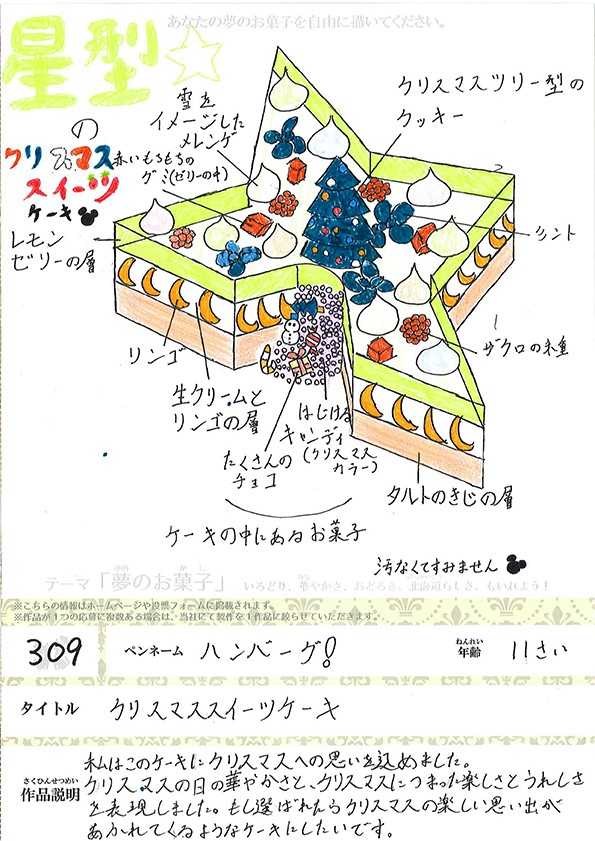 あなたの夢のお菓子を自由に描いてください。
星型
の
クリスマス
スイーツ
ケーキ
雪を
イメージした
メレンゲ
クリスマスツリー型の
クッキー
赤いもちもちの
グミ(ゼリーの中)
レモン
ゼリーの層
ミント
リンゴ
ザクロの種
生クリームと
リンゴの層
はじける
キャンディ
(クリスマス
カラー)
たくさんの
チョコ
タルトのきじの層
ケーキの中にあるお菓子
汚なくてすみません
テーマ「夢のお菓子」 いろどり、華やかさ、おどろき、北海道らしき、もいれよう!
※こちらの情報はホームページや投票フォームに掲載されます。
※作品が1つの応募に複数ある場合は、当社にて製作を1作品に絞らせていただきます。
309 ペンネーム ハンバーグ! ねんれい 年齢 11さい
タイトル クリスマススイーツケーキ
さくひんせつめい
作品説明
私はこのケーキにクリスマスへの思いを込めました。
クリスマスの日の華やかさと、クリスマスにつまった楽しさとうれしさ
を表現しました。もし選ばれたらクリスマスの楽しい思い出が
あふれてくるようなケーキにしたいです。